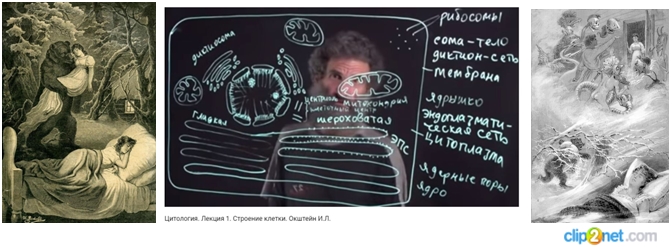 рибосомы
сома-тело
диктион-сеть
мембрана
ядрышко
эндоплазмати-
ческая сеть
цитоплазма
ядерные поры
ядро
диктиосома
центриоль
клеточный центр
митохондрия
гладкая
шероховатая
ЭПС
Цитология. Лекция 1. Строение клетки. Окштейн И.Л.
clip2net.com